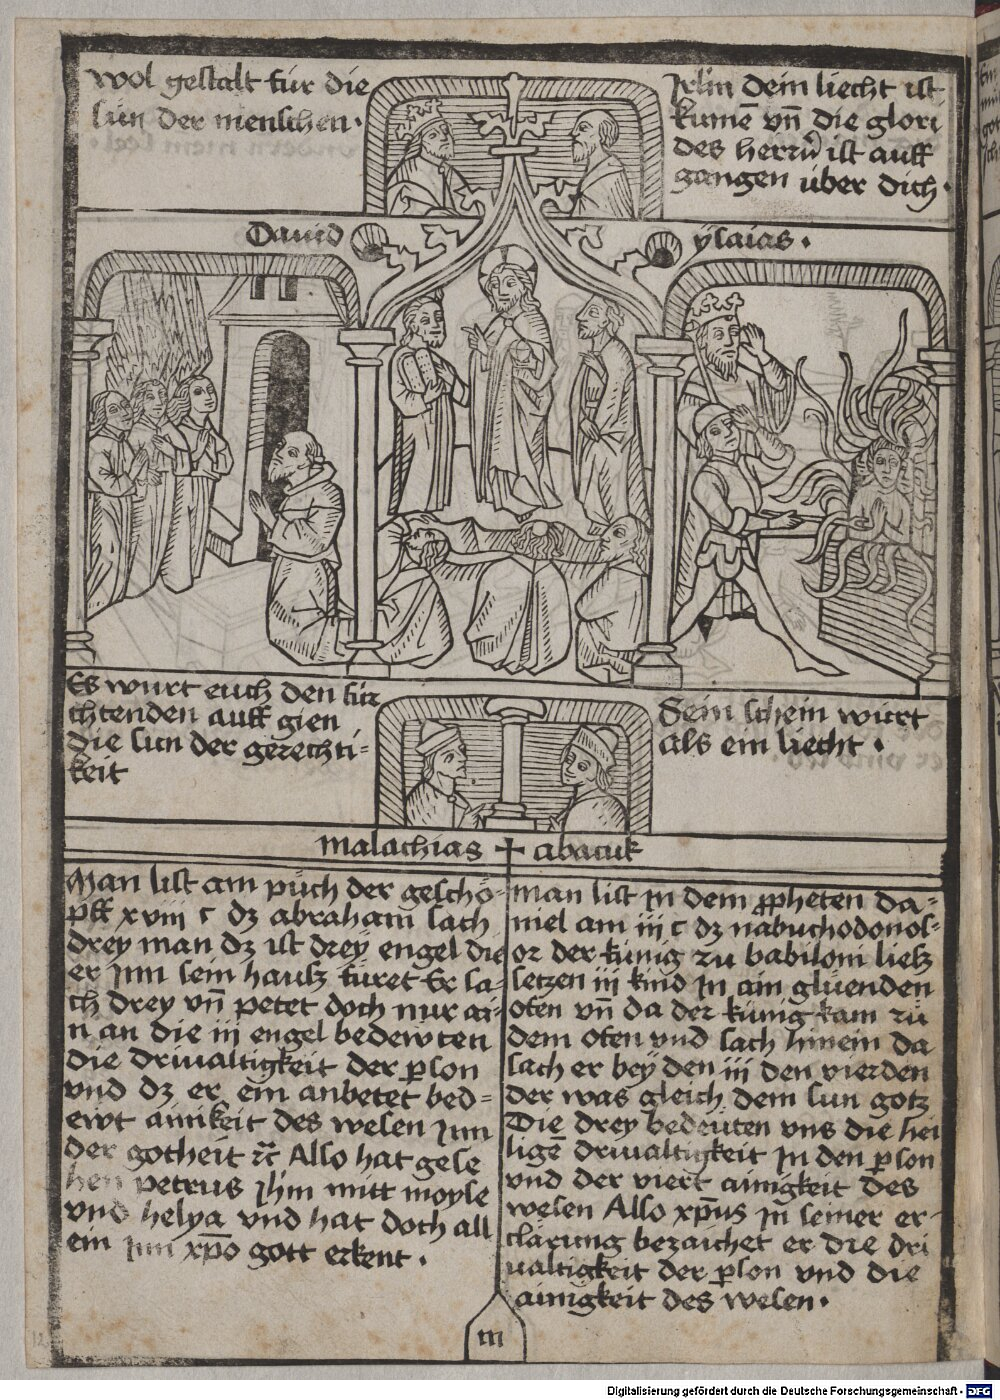 wol gestalt für die
sün der menschen ·
Jrlm dein liecht ist
kumē vn̄ die glori
des herrn̄ ist auff
gangen über dich ·
Dauid
ysaias ·
Es wurt euch den für
chtenden auff gien
die sun der gerechti-
keit
Sein schein würt
als ein liecht ·
malachias + abacuk
Man list am püch der geschö-
pff xviii c dz abraham sach
drey man dz ist drey engel die
er jnn sein hausz füret Er sa-
ch drey vn̄ petet doch nur ai-
n an die iii engel bedewten
die driualtigkeit der pson
vnd dz er ein anbetet bed-
ewt ainikeit des wesen jnn
der gotheit ꝛc̄ Also hat gese
hen petrus jhm mitt moyse
vnd helya vnd hat doch all
ein jnn xp̄o gott erkent ·
man list in dem ppheten da-
niel am iii c dz nabuchodonos-
or der künig zu babiloni liesz
setzen iii kind in ain glüenden
ofen vn̄ da der künig kam zü
dem ofen vnd sach hinein da
sach er bey den iii den vierden
der was gleich dem sun gotz
Die drey bedeuten vns die hei
ligē driualtigkeit in den pson
vnd der viert ainigkeit des
wesen Also xp̄us in seiner er-
clärung bezaichet er die dri
ualtigkeit der pson vnd die
ainigkeit des wesen ·
m
Digitalisierung gefördert durch die Deutsche Forschungsgemeinschaft - DFG